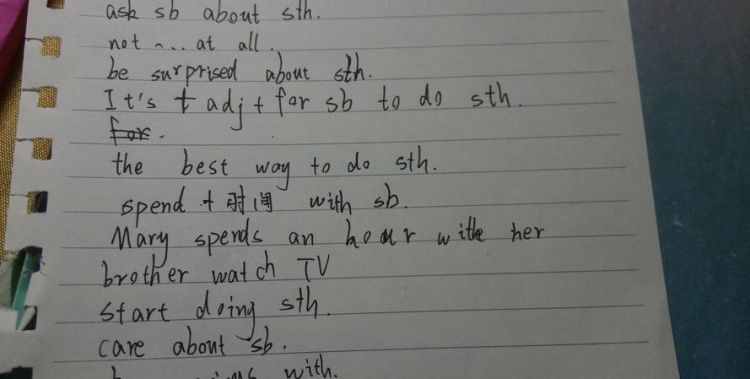 ask sb about sth.
not ... at all.
be surprised about sth.
It's + adj + for sb to do sth.
for.
the best way to do sth.
spend + 时间 with sb.
Mary spends an hour with her
brother watch TV
start doing sth.
care about sb.
with.